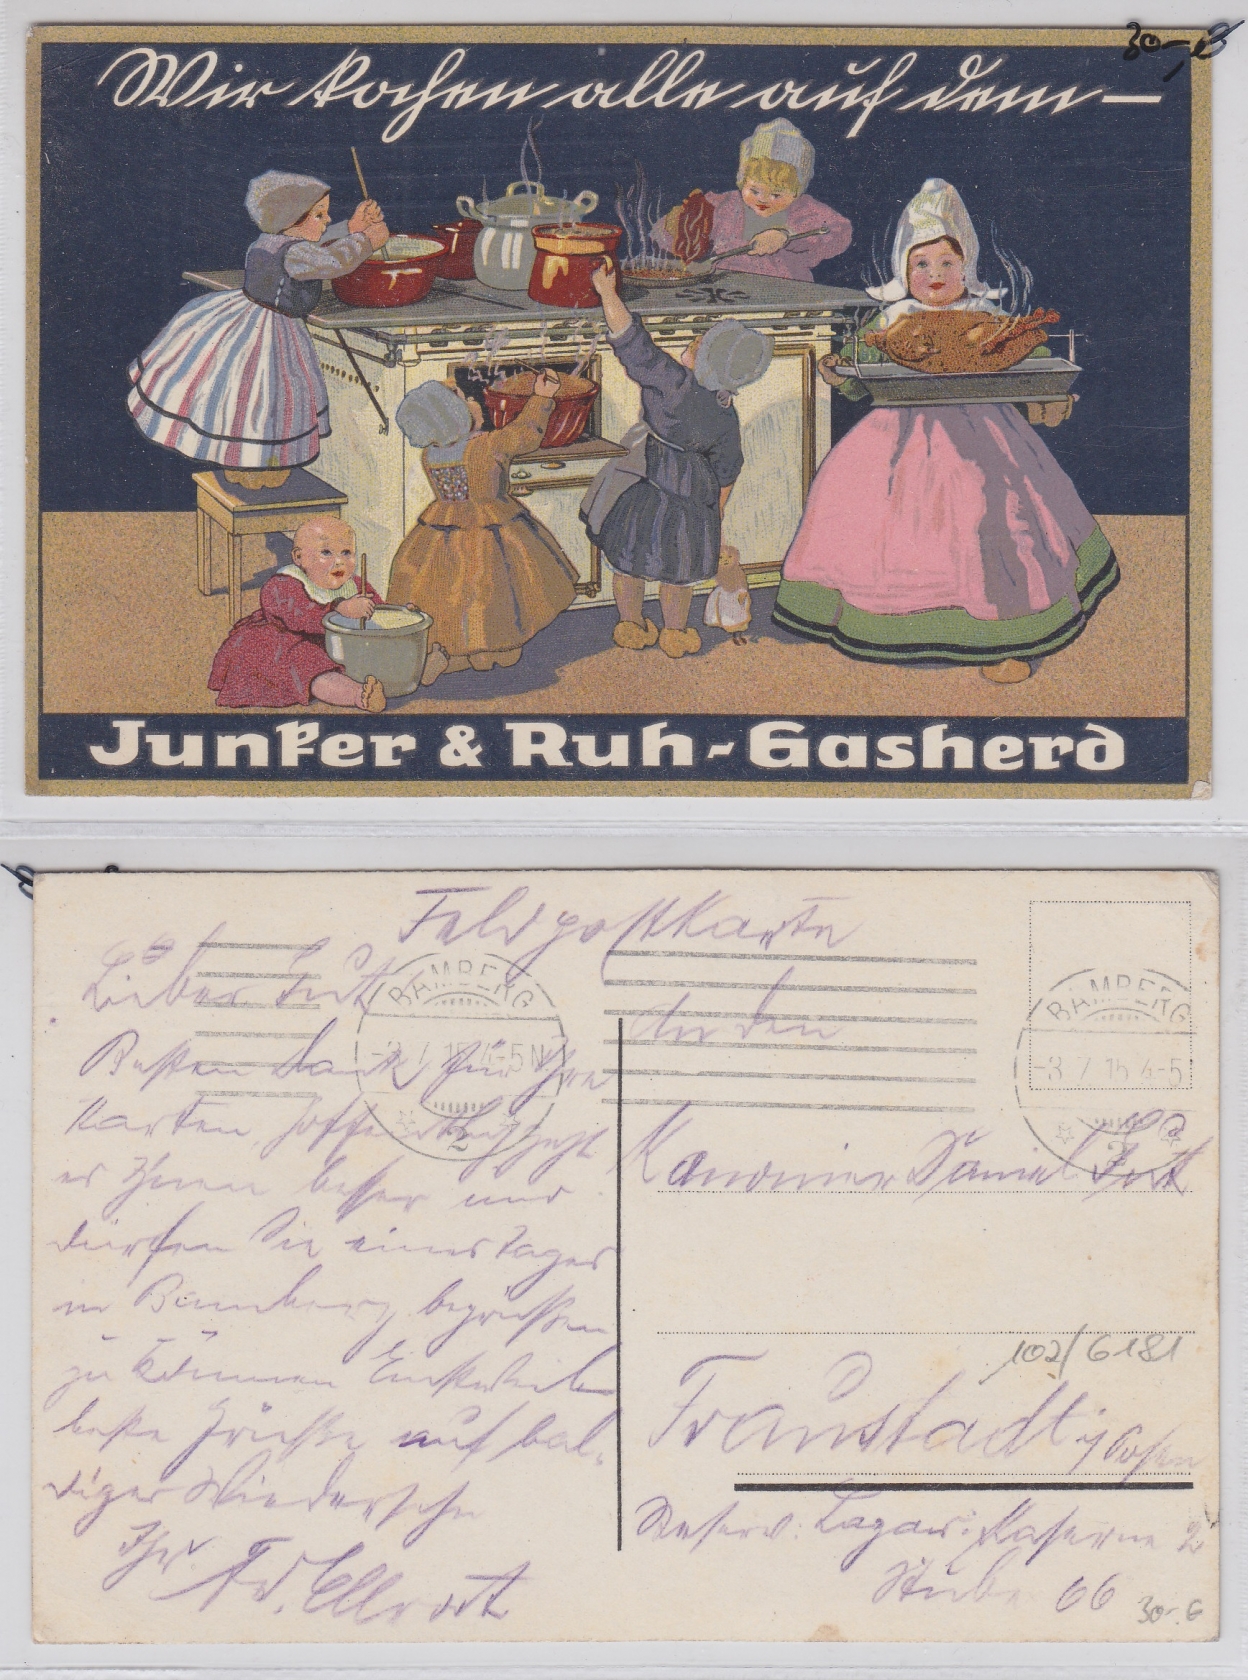 30,-
Wir kochen alle auf dem —
Junker & Ruh-Gasherd
Feldpostkarte
Lieber
BAMBERG
BAMBERG
An den
-3.7.15 4-5 N
-3.7.15 4-5
2
2
Besten Dank für Ihre
Karten, hoffentlich geht
es Ihnen besser und
dürfen Sie eines Tages
in Bamberg begrüßen
zu können Einstweilen
beste Grüße auf bal-
diges Wiedersehn
Ihr
Fr. Ellrodt
Kanonier Daniel
102/6181
Fraustadt i/Posen
Reserv. Lazar. Kaserne 2
Stube 66
30,-